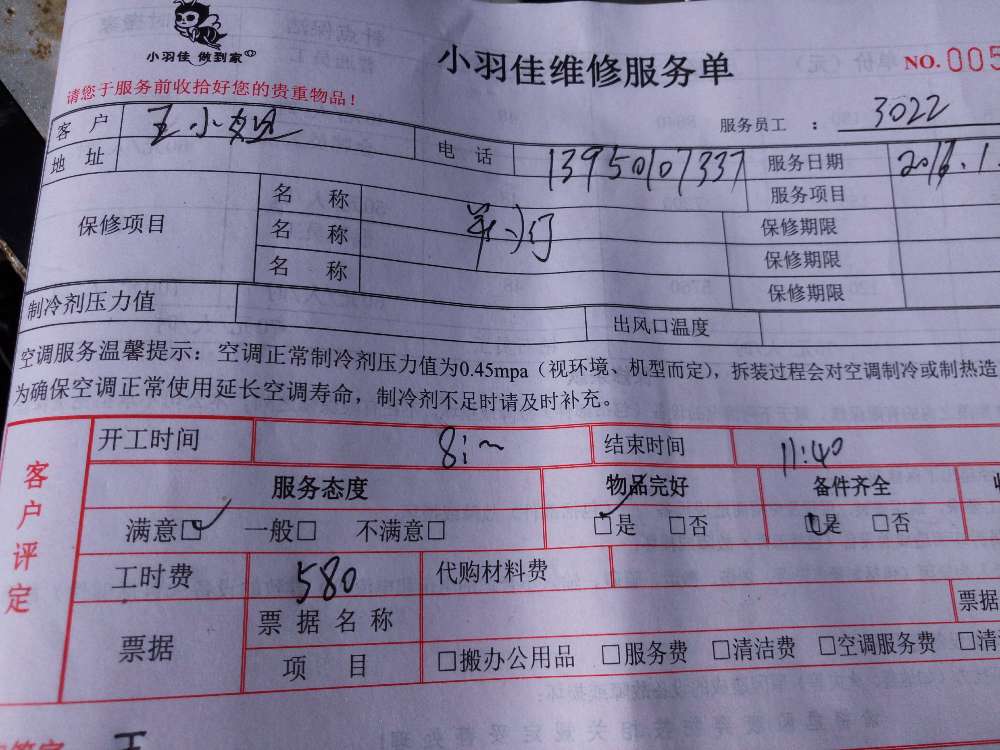 小羽佳 做到家
小羽佳维修服务单
NO. 005
请您于服务前收拾好您的贵重物品!
服务员工 : 3022
客户 王小姐
地址
电话 13950107337
服务日期
服务项目
保修项目
名称
名称
名称
保修期限
保修期限
保修期限
制冷剂压力值
出风口温度
空调服务温馨提示：空调正常制冷剂压力值为0.45mpa（视环境、机型而定），拆装过程会对空调制冷或制热造
为确保空调正常使用延长空调寿命，制冷剂不足时请及时补充。
客户评定
开工时间
结束时间 11:40
服务态度 物品完好 备件齐全
满意□ 一般□ 不满意□ □是 □否 □是 □否
工时费 580 代购材料费
票据
票据名称
票据
项目 □搬办公用品 □服务费 □清洁费 □空调服务费 □清
王